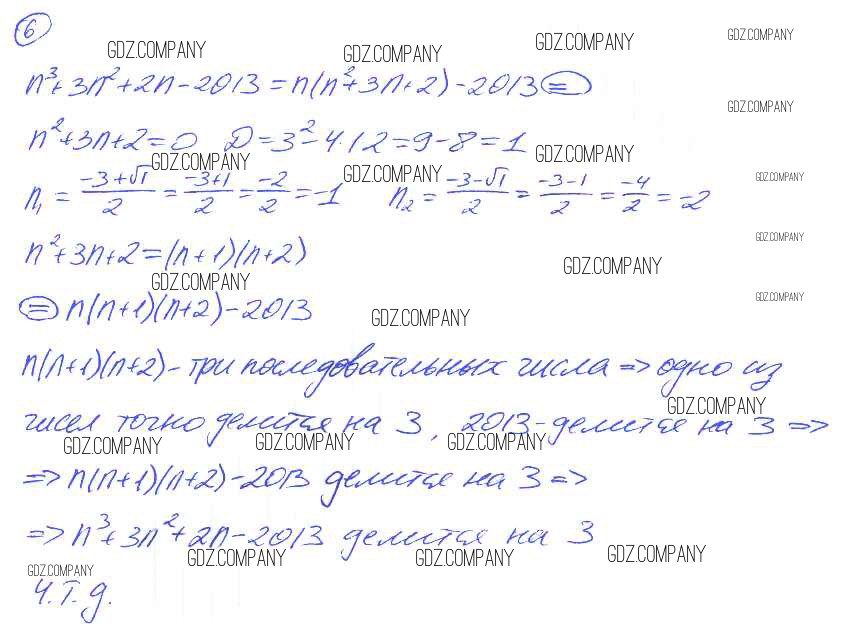 6
GDZ.COMPANY GDZ.COMPANY GDZ.COMPANY GDZ.COMPANY
n³+3n²+2n-2013=n(n²+3n+2)-2013 =
GDZ.COMPANY
n²+3n+2=0 D=3²-4·1·2=9-8=1
GDZ.COMPANY GDZ.COMPANY GDZ.COMPANY GDZ.COMPANY
n₁ = (-3+√1)/2 = (-3+1)/2 = -2/2 = -1 n₂ = (-3-√1)/2 = (-3-1)/2 = -4/2 = -2
GDZ.COMPANY
n²+3n+2=(n+1)(n+2)
GDZ.COMPANY GDZ.COMPANY GDZ.COMPANY
= n(n+1)(n+2)-2013
GDZ.COMPANY
n(n+1)(n+2)-три последовательных числа => одно из
GDZ.COMPANY
чисел точно делится на 3, 2013-делится на 3 =>
GDZ.COMPANY GDZ.COMPANY GDZ.COMPANY
=> n(n+1)(n+2)-2013 делится на 3 =>
=> n³+3n²+2n-2013 делится на 3
GDZ.COMPANY GDZ.COMPANY GDZ.COMPANY
GDZ.COMPANY
Ч.Т.д.